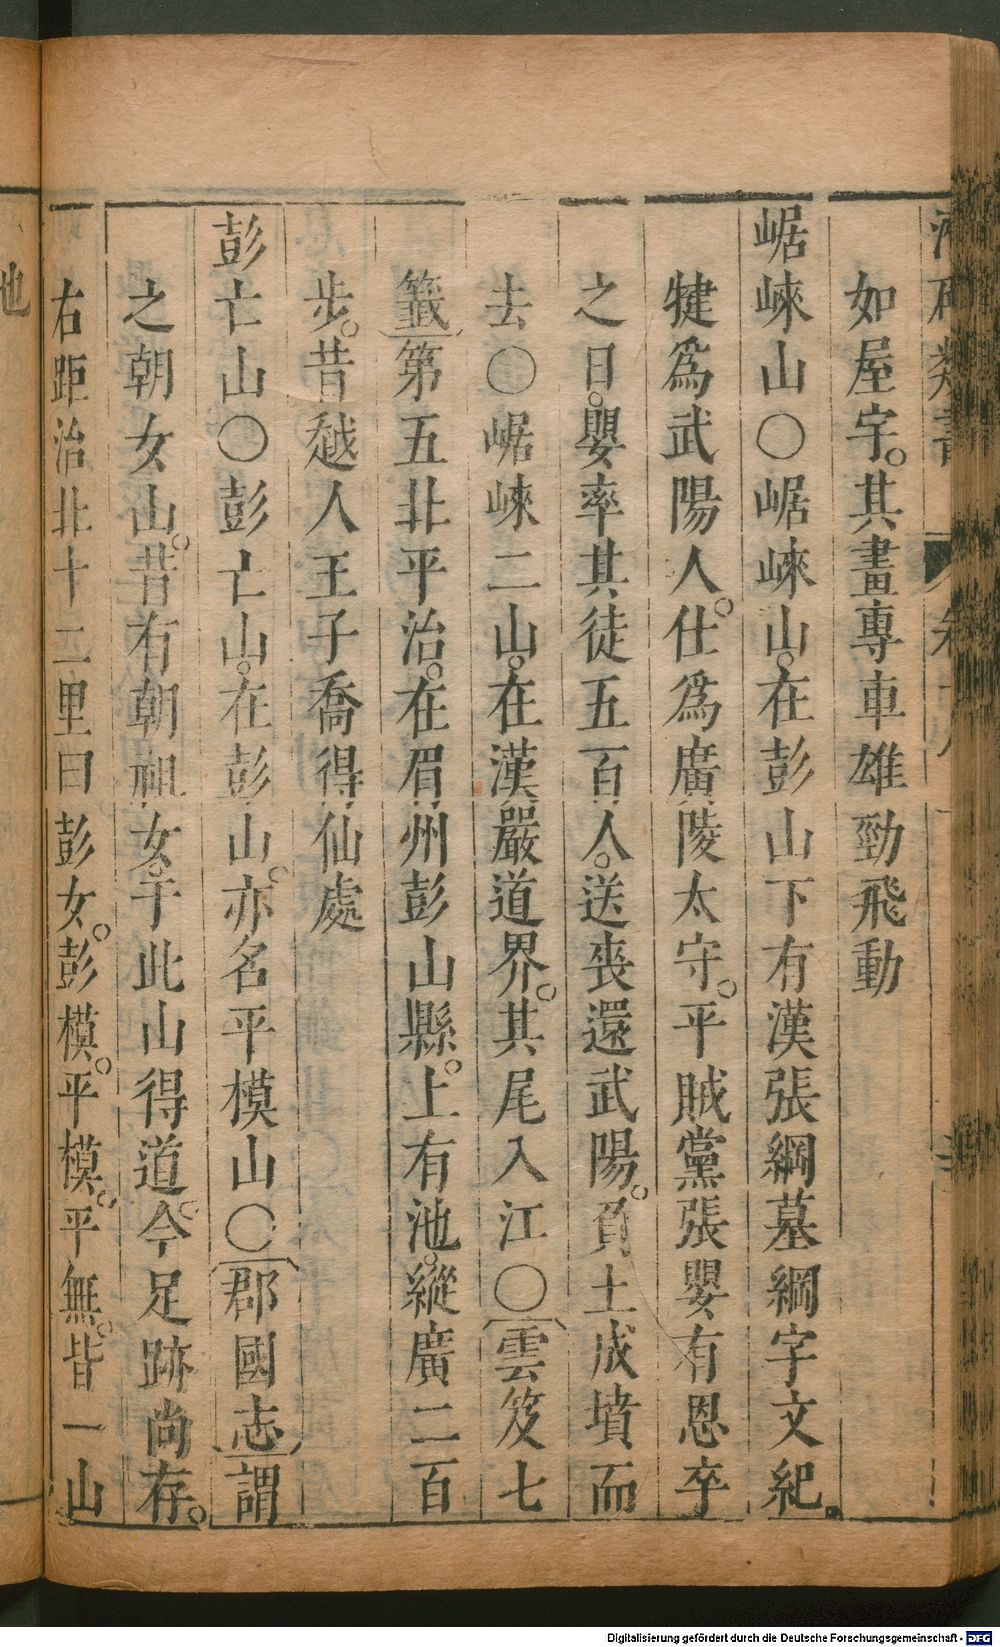 如屋宇。其畫專車雄勁飛動
崌崍山〇崌崍山。在彭山下有漢張綱墓綱字文紀。
犍爲武陽人。仕爲廣陵太守。平賊黨張嬰有恩卒
之日。嬰率其徒五百人。送喪還武陽。負土成墳而
去〇崌崍二山。在漢嚴道界。其尾入江〇雲笈七
籤第五北平治。在眉州彭山縣。上有池。縱廣二百
步。昔越人王子喬得仙處
彭亡山〇彭亡山。在彭山。亦名平模山〇郡國志謂
之朝女山。昔有朝祖女。于此山得道。今足跡尚存。
右距治北十二里曰彭女。彭模。平模。平無。皆一山
地
Digitalisierung gefördert durch die Deutsche Forschungsgemeinschaft - DFG